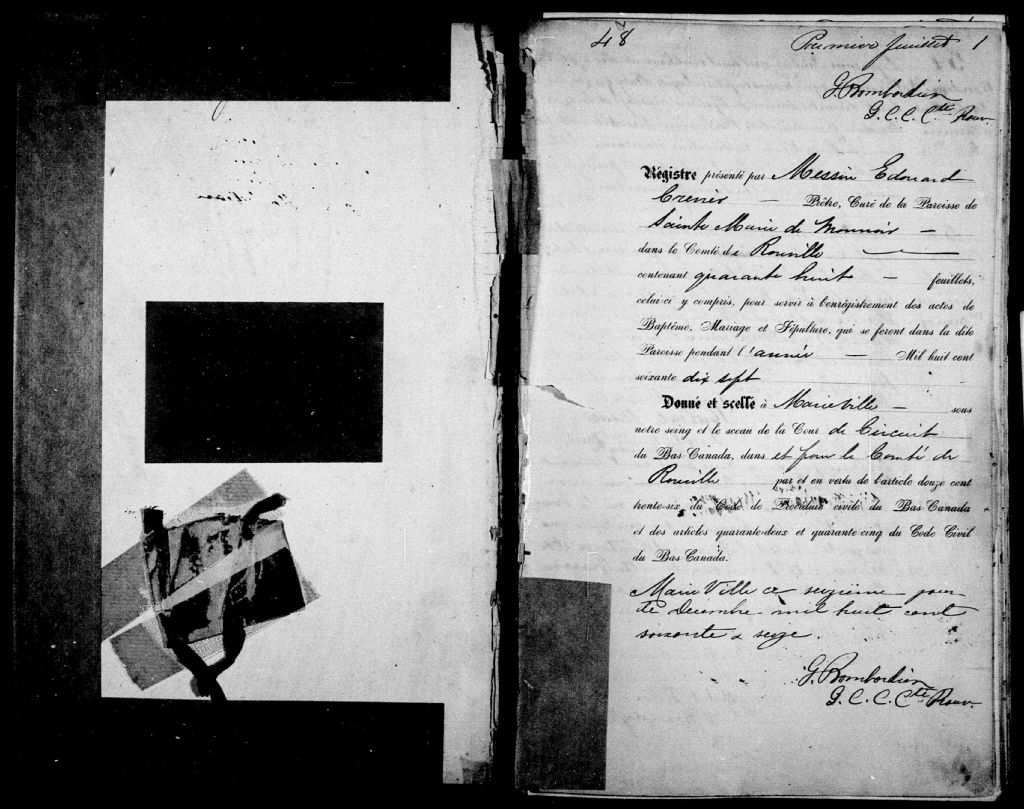 48 Premier feuillet 1
G. Bombardier
G. C. C. Cté Rouv.
Régistre présenté par Messire Edouard
Crevier — Prêtre, Curé de la Paroisse de
Sainte Marie de Monnoir —
dans le Comté de Rouville —
contenant quarante huit — feuillets,
celui-ci y compris, pour servir à l'enrégistrement des actes de
Baptême, Mariage et Sépulture, qui se feront dans la dite
Paroisse pendant l'année — Mil huit cent
soixante dix sept
Donné et scellé à Marieville — sous
notre seing et le sceau de la Cour de Circuit
du Bas-Canada, dans et pour le Comté de
Rouville par et en vertu de l'article douze cent
trente-six du Code de Procédure civile du Bas-Canada
et des articles quarante-deux et quarante-cinq du Code Civil
du Bas-Canada.
Marie Ville ce seizième jour
de Decembre mil huit cent
soixante & seize.
G. Bombardier
G. C. C. Cté Rouv.